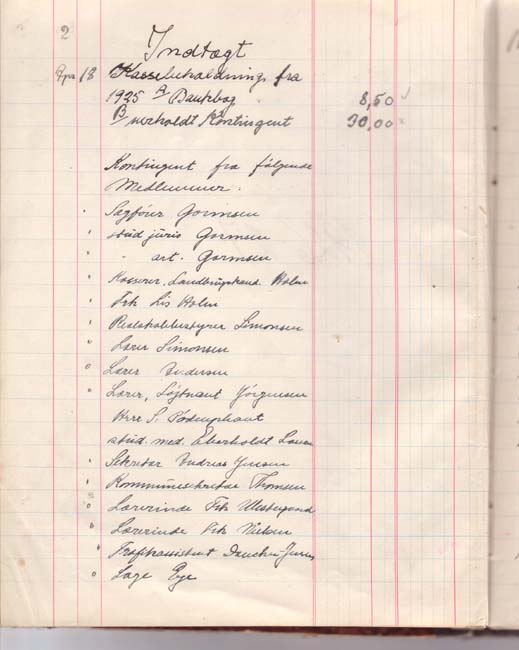 2
Indtægt
Apr. 18 Kassebeholdning fra
1925 A/ Bankbog 8,50
B/ Kontingent 30,00
Kontingent fra følgende
Medlemmer:
Sagfører Gormsen
stud juris Gormsen
" art. Gormsen
Kasserer, Landbrugskand. Holm
Frk Lis Holm
Realskolebestyrer Simonsen
Lærer Simonsen
Lærer Andersen
Lærer, Løjtnant Jørgensen
Herr S.
stud. med. Eberholdt
Sekretær Andreas Jensen
Kommunesekretær Thomsen
Lærerinde Frk Westergaard
Lærerinde Frk Nielsen
Trafikassistent
Læge